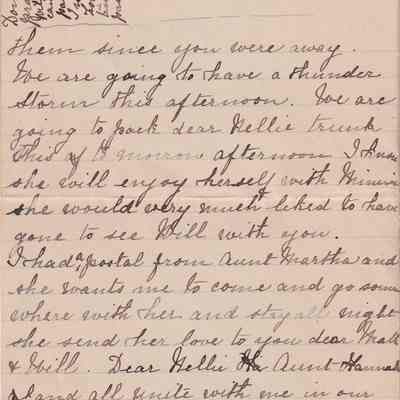 them since you were away.
We are going to have a thunder
storm this afternoon. We are
going to pack dear Nellie trunk
this af to morrow afternoon I know
she will enjoy herself with Minnie
she would very much liked to have
gone to see Will with you.
I had a postal from Aunt Martha and
she wants me to come and go some
where with her and stay all night
she send her love to you dear
& Will. Dear Nellie Ha Aunt Hannah
and all unite with me in our